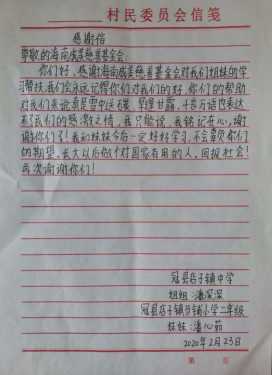 村民委员会信笺
感谢信
尊敬的海南成美慈善基金会:
你们好,感谢海南成美慈善基金会对我们姐妹的学
习帮扶,我们会永远记得你们对我们的好,你们的帮助
对我们来说真是雪中送碳、旱逢甘露,千言万语也表达
不了我们的感激之情,我只能说,我铭记在心,谢
谢你们了!我和妹妹今后一定好好学习,不会辜负你们
的期望,长大以后做个对国家有用的人,回报社会!
再次谢谢你们!
冠县店子镇中学
姐姐:潘深深
冠县店子镇当铺小学二年级
妹妹:潘心茹
2020年2月23日
第 页